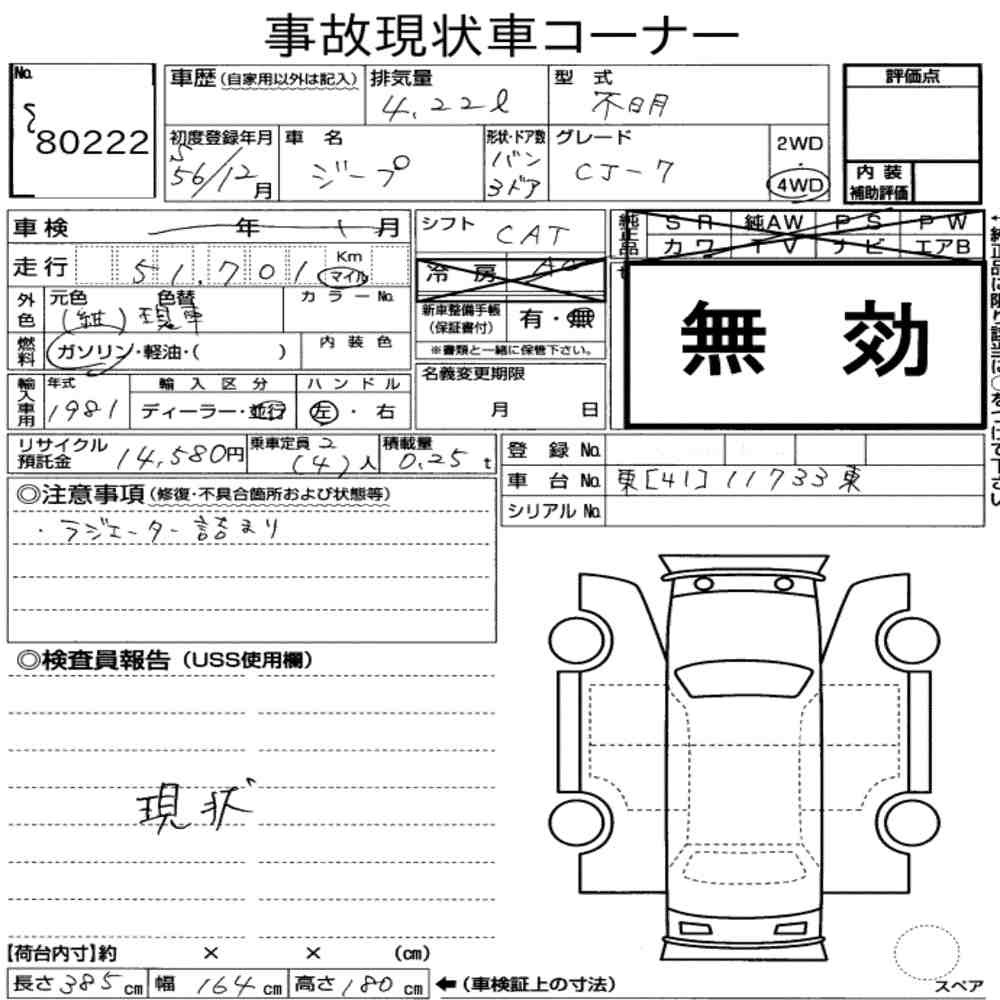 事故現状車コーナー
No.
80222
車歴(自家用以外は記入)
排気量
4.22ℓ
型式
不明
初度登録年月
S56/12月
車名
ジープ
形状・ドア数
バン
3ドア
グレード
CJ-7
2WD
・
4WD
評価点
内装
補助評価
車検 年 月
走行 51,701 Km マイル
シフト
CAT
冷房 AC
純正品
SR 純AW PS PW
カワ TV ナビ エアB
無効
外色
元色 色替
(紺) 現車
カラーNo.
燃料
ガソリン・軽油・( )
内装色
新車整備手帳
(保証書付)
有・無
※書類と一緒に保管下さい。
輸入車用
年式
1981
輸入区分
ディーラー・並行
ハンドル
左・右
名義変更期限
月 日
リサイクル
預託金
14,580円
乗車定員 2
(4)人
積載量
0.25t
登録No.
車台No. 東[41]11733東
シリアルNo.
◎注意事項(修復・不具合箇所および状態等)
・ラジエーター詰まり
◎検査員報告(USS使用欄)
現状
【荷台内寸】約 × × (cm)
長さ385cm 幅164cm 高さ180cm ←(車検証上の寸法)
スペア